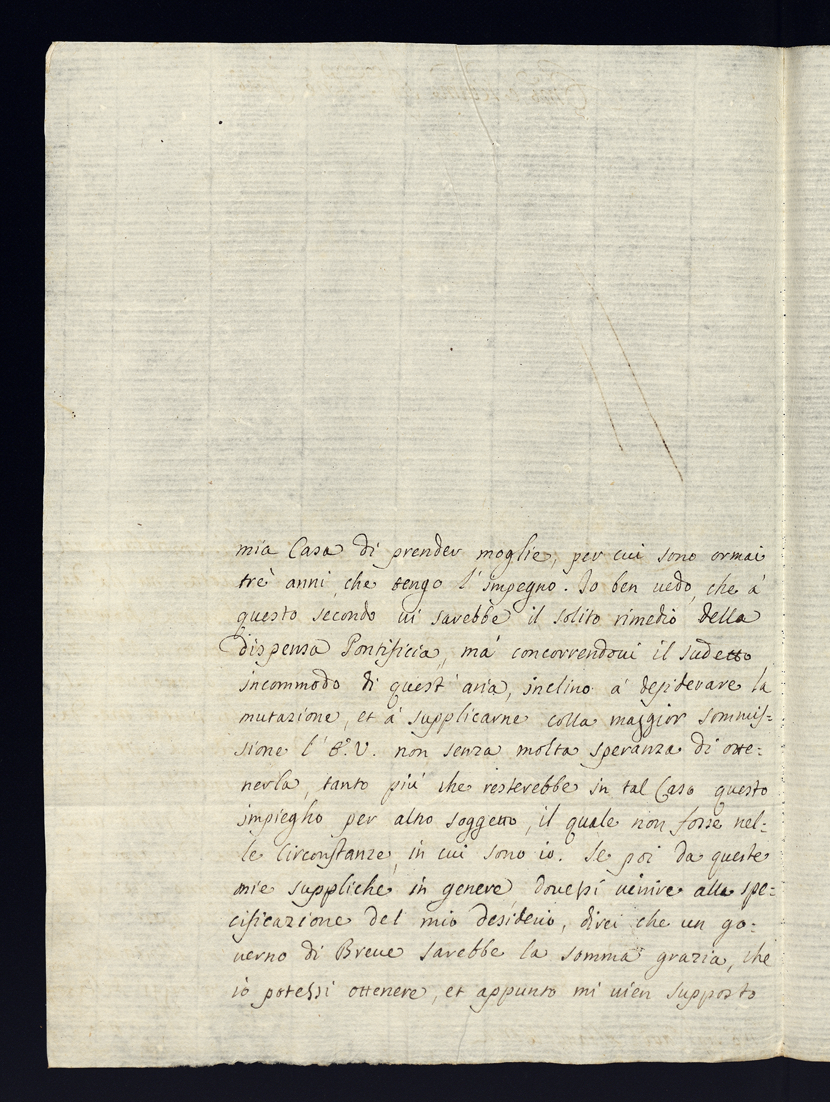 mia Casa di prender moglie, per cui sono ormai
trè anni, che tengo l'impegno. Io ben vedo, che à
questo secondo vi sarebbe il solito rimedio della
dispensa Pontificia, mà concorrendovi il sudetto
incommodo di quest'aria, inclino à desiderare la
mutazione, et à supplicarne colla maggior sommis=
sione l'E. V. non senza molta speranza di otte=
nerla, tanto più che resterebbe in tal Caso questo
impiegho per altro soggetto, il quale non fosse nel=
le Circonstanze, in cui sono io. Se poi da queste
mie suppliche in genere dovessi venire alla spe=
cificazione del mio desiderio, direi che un go=
verno di Breve sarebbe la somma grazia, che
io potessi ottenere, et appunto mi vien supposto